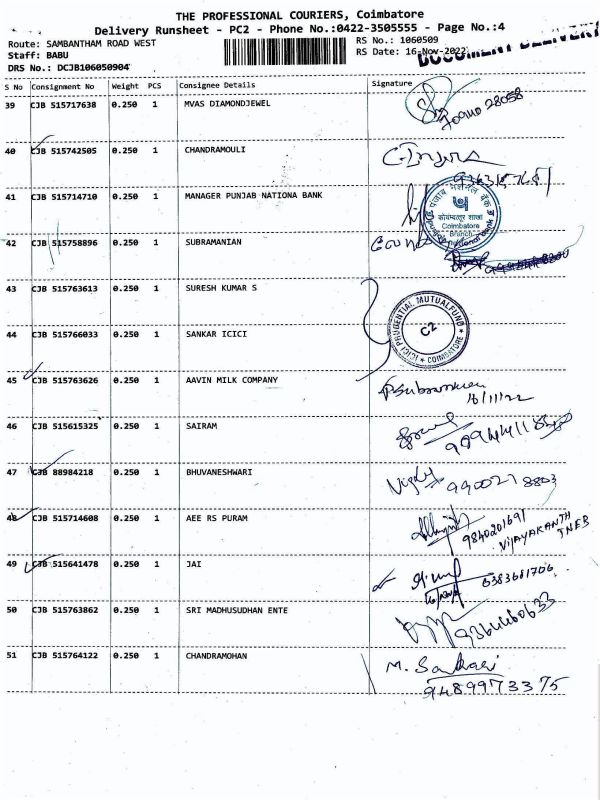 THE PROFESSIONAL COURIERS, Coimbatore
Delivery Runsheet - PC2 - Phone No.:0422-3505555 - Page No.:4
Route: SAMBANTHAM ROAD WEST
RS No.: 1060509
Staff: BABU
RS Date: 16-Nov-2022
DRS No.: DCJB106050904
S No Consignment No Weight PCS Consignee Details Signature
39 CJB 515717638 0.250 1 MVAS DIAMONDJEWEL
40 CJB 515742505 0.250 1 CHANDRAMOULI
41 CJB 515714710 0.250 1 MANAGER PUNJAB NATIONA BANK
पंजाब नैशनल बैंक
कोयम्बत्तूर शाखा
Coimbatore
Branch
42 CJB 515758896 0.250 1 SUBRAMANIAN
43 CJB 515763613 0.250 1 SURESH KUMAR S
ICICI PRUDENTIAL MUTUAL FUND
C2
COIMBATORE
44 CJB 515766033 0.250 1 SANKAR ICICI
45 CJB 515763626 0.250 1 AAVIN MILK COMPANY
16/11/22
46 CJB 515615325 0.250 1 SAIRAM
47 CJB 88984218 0.250 1 BHUVANESHWARI
48 CJB 515714608 0.250 1 AEE RS PURAM
9840201691
VIJAYAKANTH
TNEB
49 CJB 515641478 0.250 1 JAI
6383681706
50 CJB 515763862 0.250 1 SRI MADHUSUDHAN ENTE
51 CJB 515764122 0.250 1 CHANDRAMOHAN
9489973375